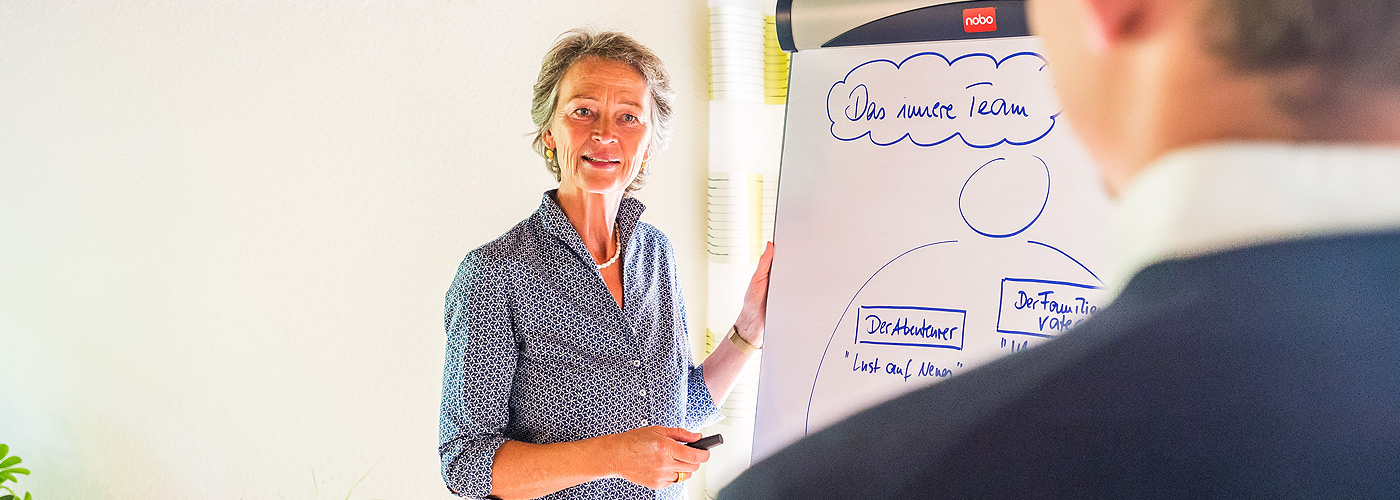 nobo
Das innere Team
Der Abenteurer
"Lust auf Neues"
Der Familien
vater